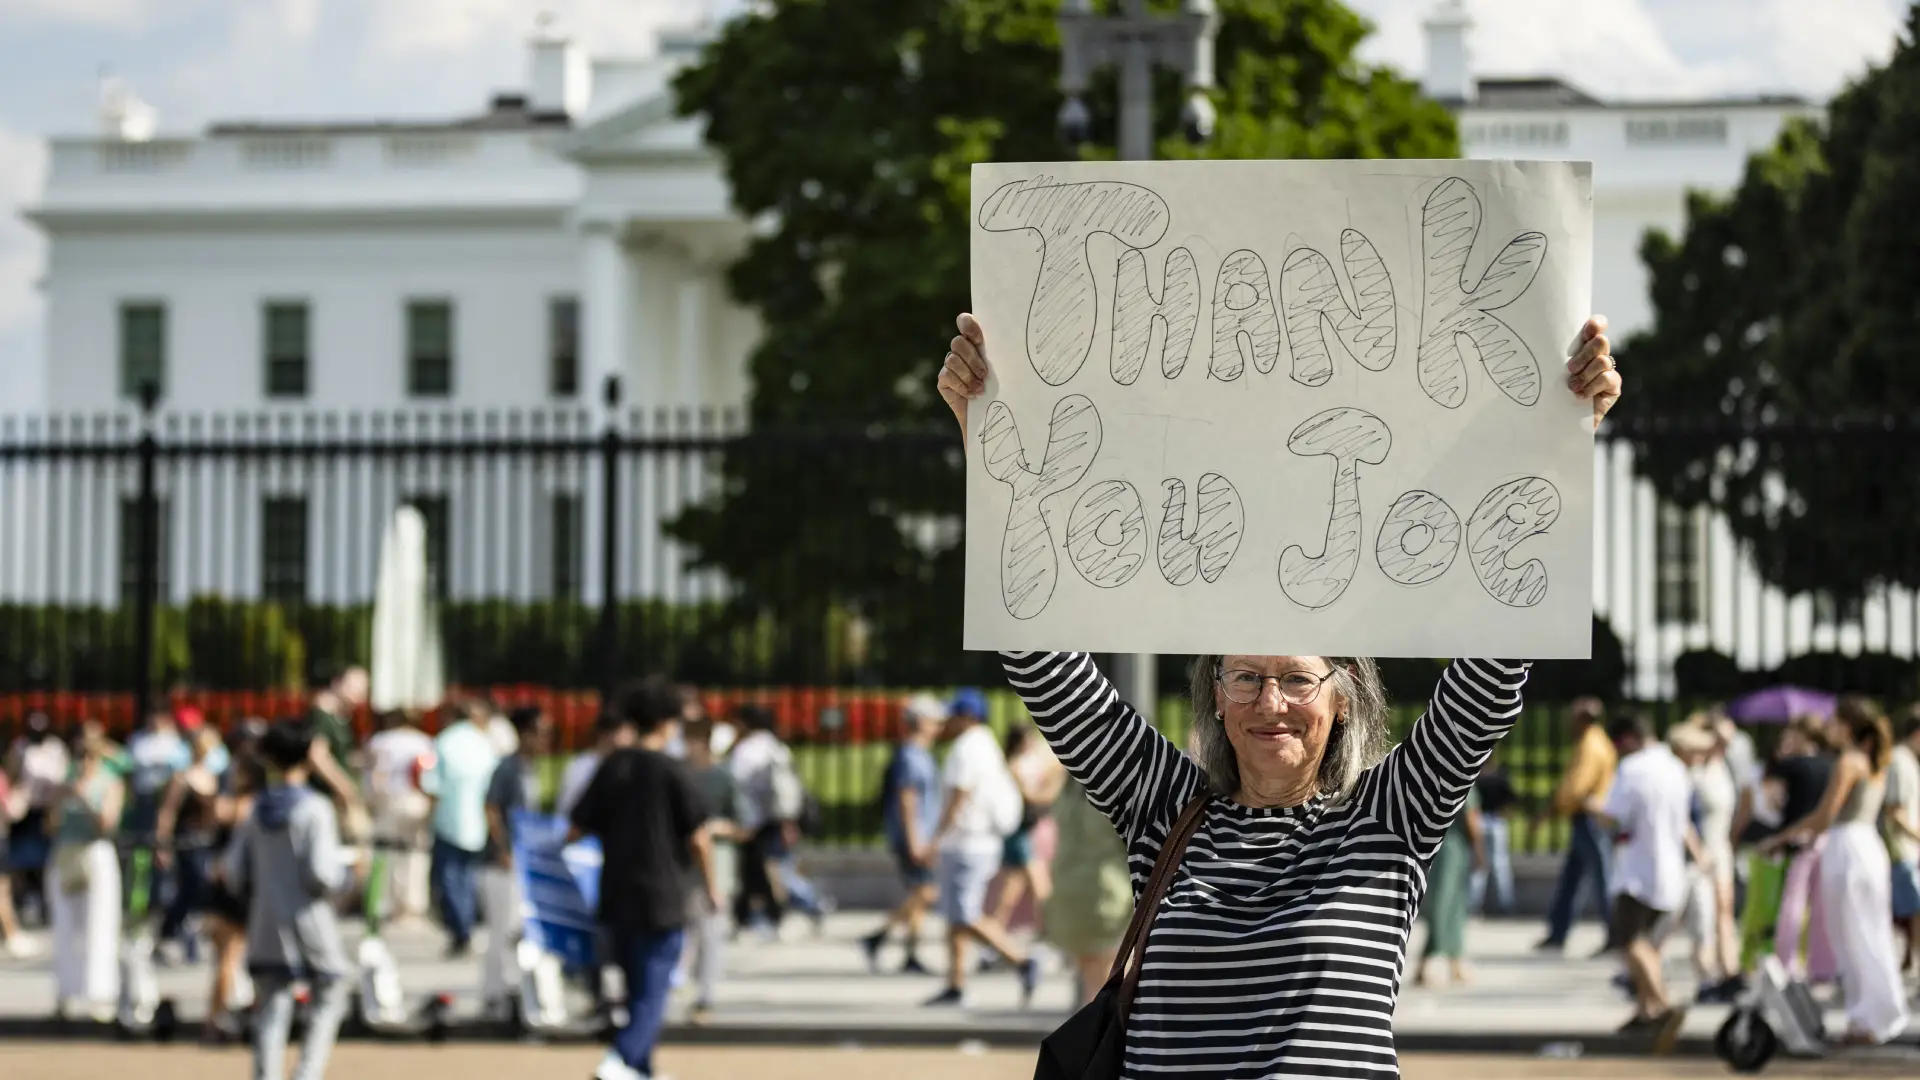 Thank
You Joe